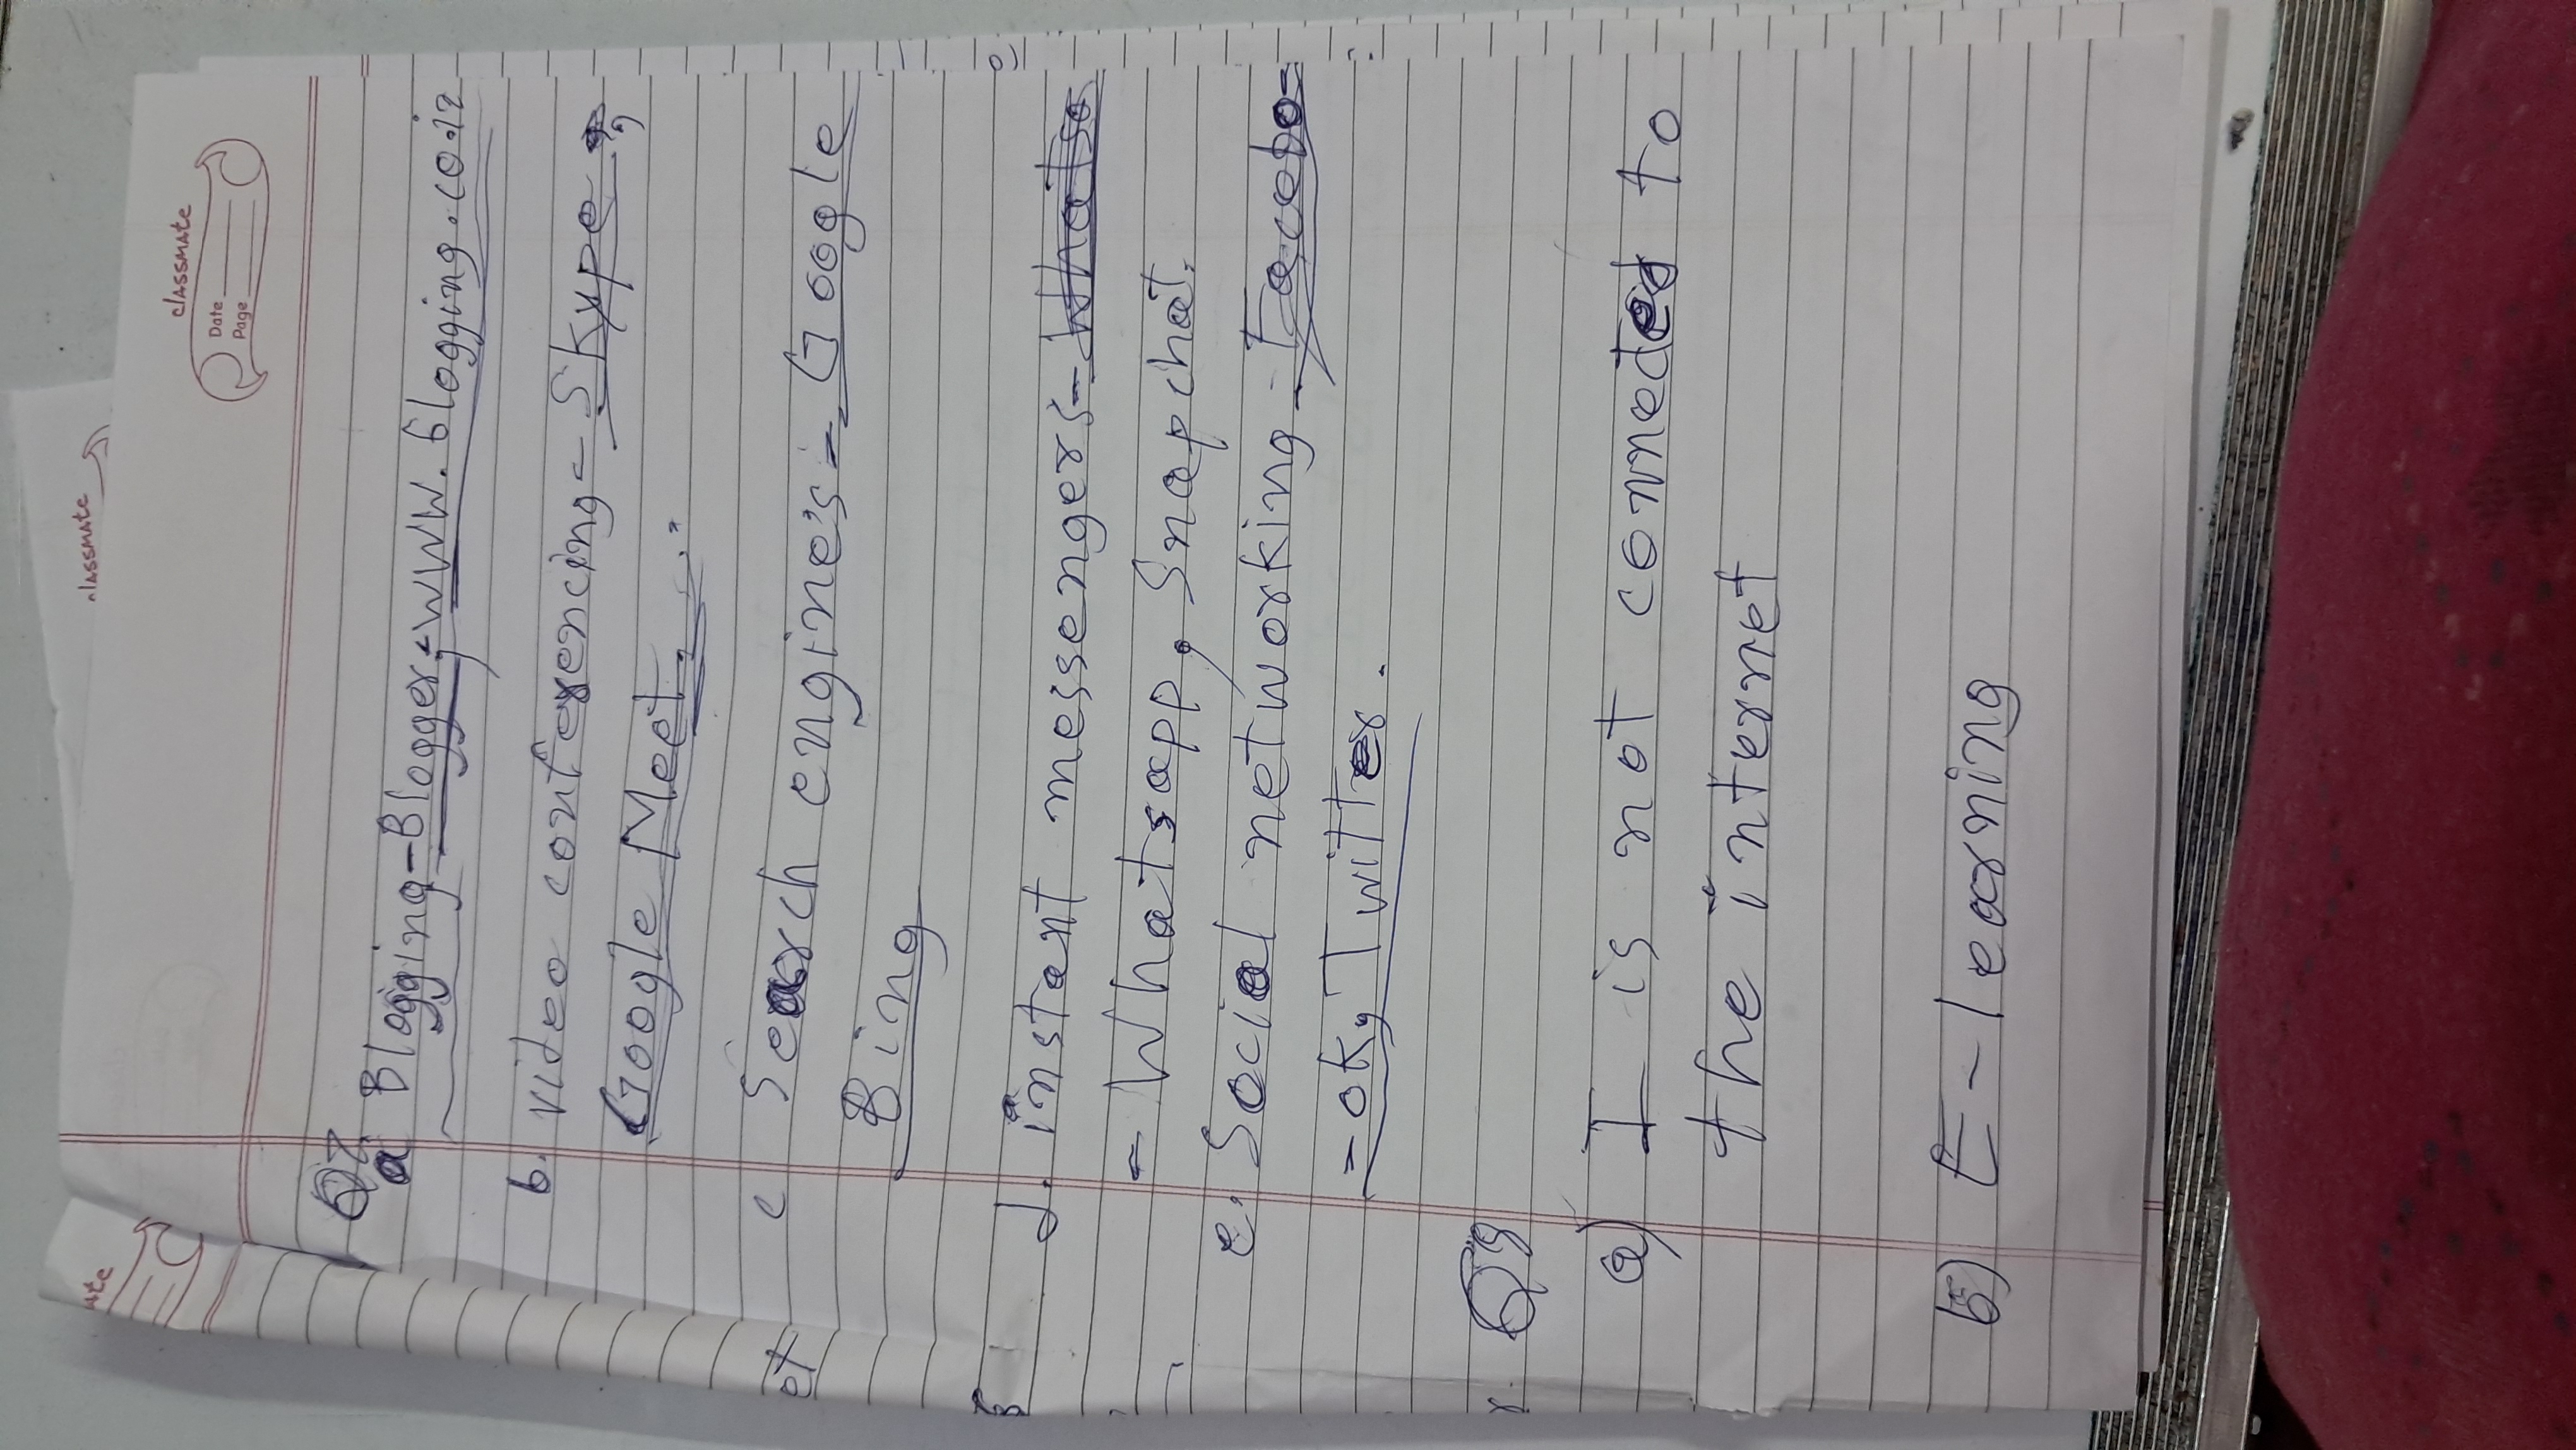 ate
classmate
classmate
Date
Page
Q7.
a Blogging-Blogger,-www.blogging.co.in
b. video conferencing- Skype,
Google Meet.
et
c Search engine's - Google
Bing
d. instant messengers- Whatsa
- Whatsapp, Snapchat.
e. Social networking - Facebo-
-ok, Twitter.
Q8
a) I is not conneted to
the internet
b) E-learning